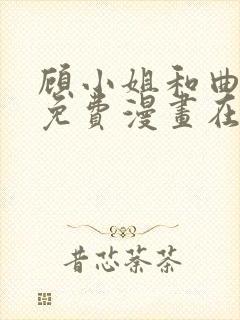 顾小姐和曲
免费漫畫在
昔芯萘茶